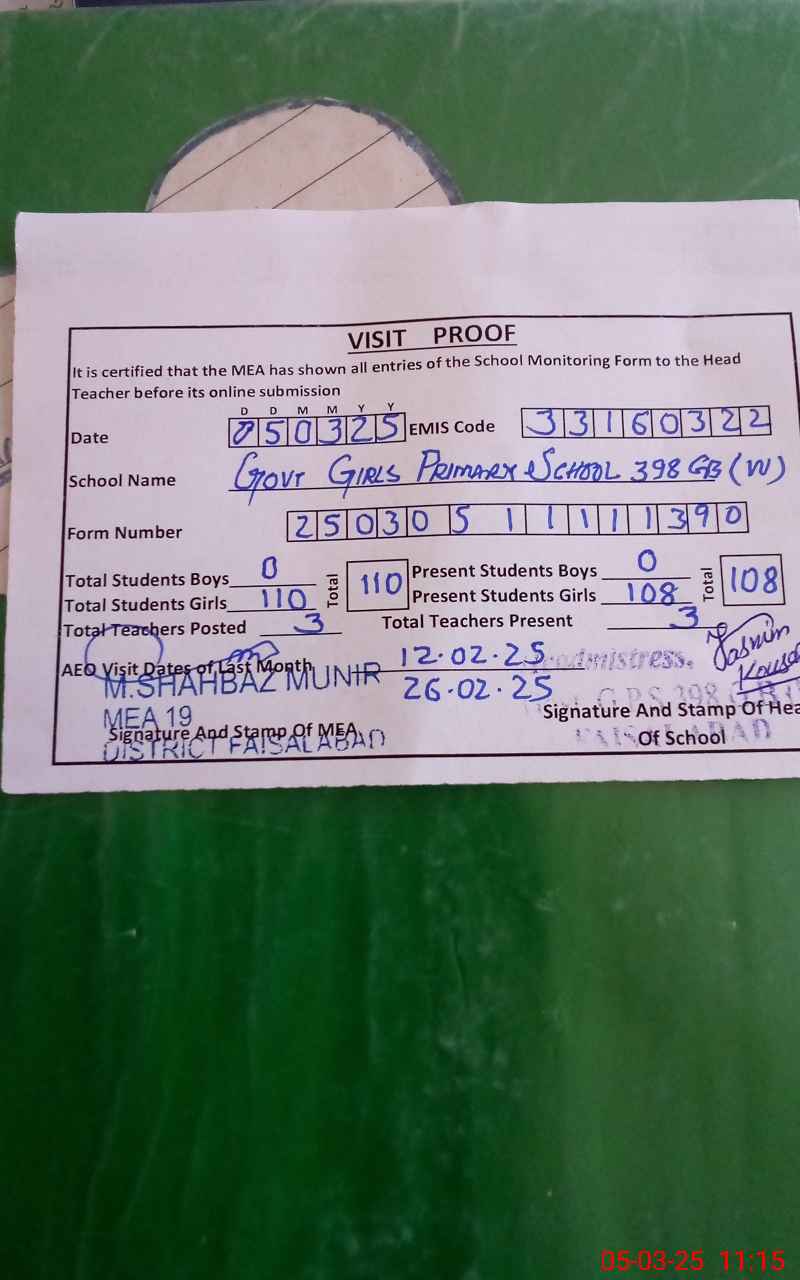 VISIT PROOF
It is certified that the MEA has shown all entries of the School Monitoring Form to the Head
Teacher before its online submission
D D M M Y Y
Date 050325 EMIS Code 33160322
School Name GOVT GIRLS PRIMARY SCHOOL 398 GB (W)
Form Number 25030511111390
Total Students Boys 0 Total 110 Present Students Boys 0 Total 108
Total Students Girls 110 Present Students Girls 108
Total Teachers Posted 3 Total Teachers Present 3
AEO Visit Dates of Last Month 12.02.25
26.02.25
M.SHAHBAZ MUNIR
MEA 19
DISTRICT FAISALABAD
Signature And Stamp Of MEA
admistress.
Tasnim
Kousa
G.P.S 398 G.B
FAISALABAD
Signature And Stamp Of Hea
Of School
05-03-25 11:15